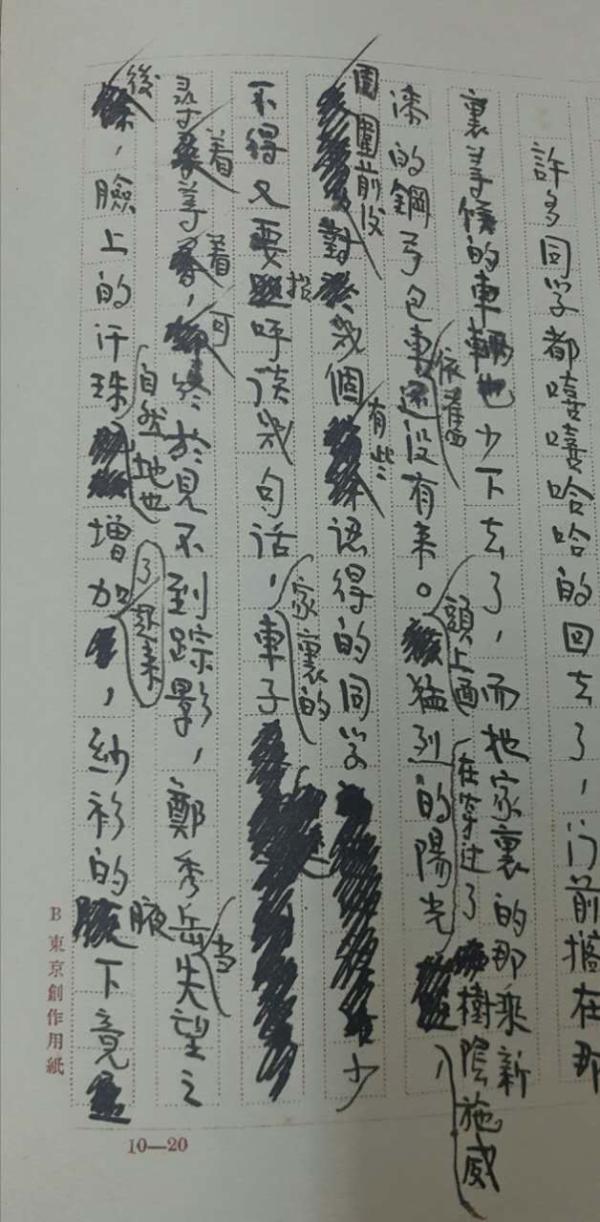 許多同学都嘻嘻哈哈的回去了，门前擋在那
裏等候的車輛也少下去了，而她家裏的那乘新
漆的鋼弓包車依舊還没有来。頭上面猛烈的陽光在穿过了樹陰施威，
圍圍前後對幾個有些認得的同学少
不得又要招呼談幾句话，家裏的車子
尋着等着，可終於見不到踪影，鄭秀岳当失望之
後，臉上的汗珠自然地也增加了起来，紗衫的腋下竟
B 東京創作用紙
10—20